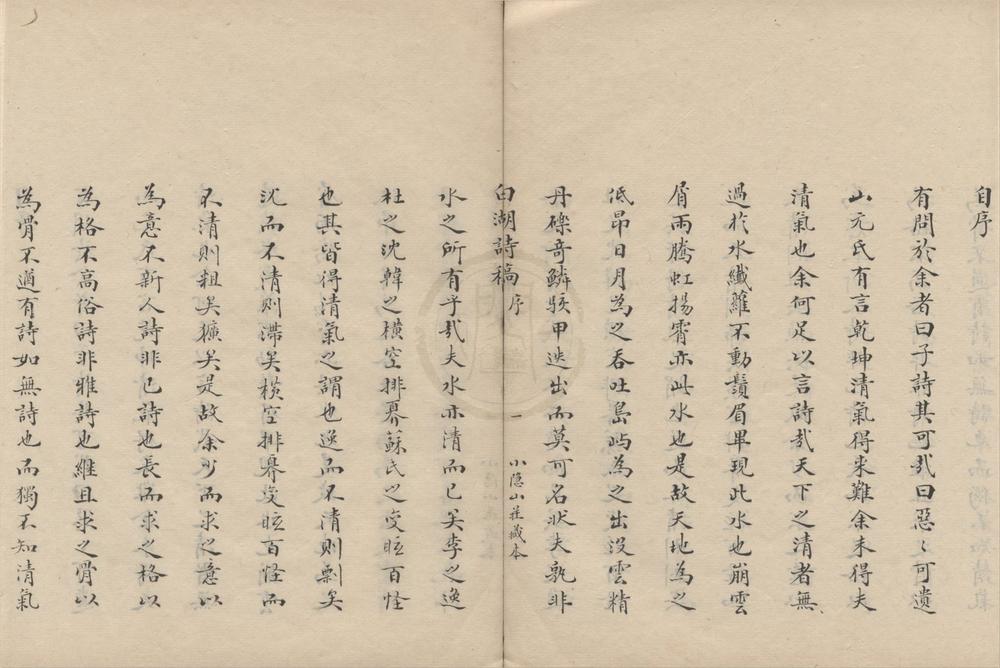 自序
有問於余者曰子詩其可哉曰惡〻可遺
山元氏有言乾坤清氣得来難余未得夫
清氣也余何足以言詩哉天下之清者無
過於水纖蘿不動鬚眉畢現此水也崩雲
屑雨騰虹揚霄亦此水也是故天地為之
低昂日月為之吞吐島屿為之出沒雲精
丹礫奇鱗駭甲迭出而莫可名狀夫孰非
白湖詩稿 序 一 小隱山莊藏本
水之所有乎哉夫水亦清而已矣李之逸
杜之沈韓之橫空排奡蘇氏之变眩百怪
也其皆得清氣之謂也逸而不清則剽矣
沈而不清則滞矣橫空排奡变眩百怪而
不清則粗矣獷矣是故余少而求之意以
為意不新人詩非已詩也長而求之格以
為格不高俗詩非雅詩也継且求之骨以
為骨不遒有詩如無詩也而獨不知清氣